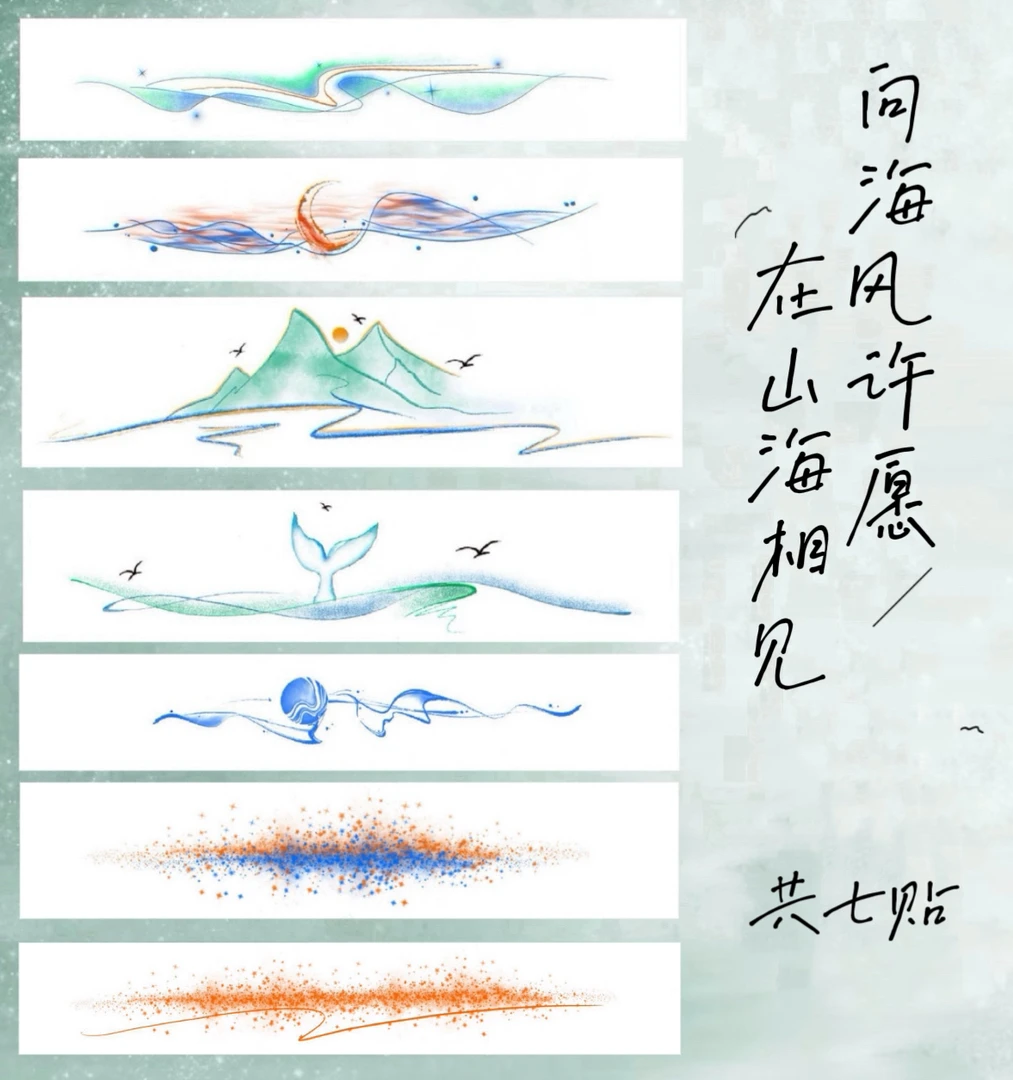 向海风许愿
在山海相见
共七贴